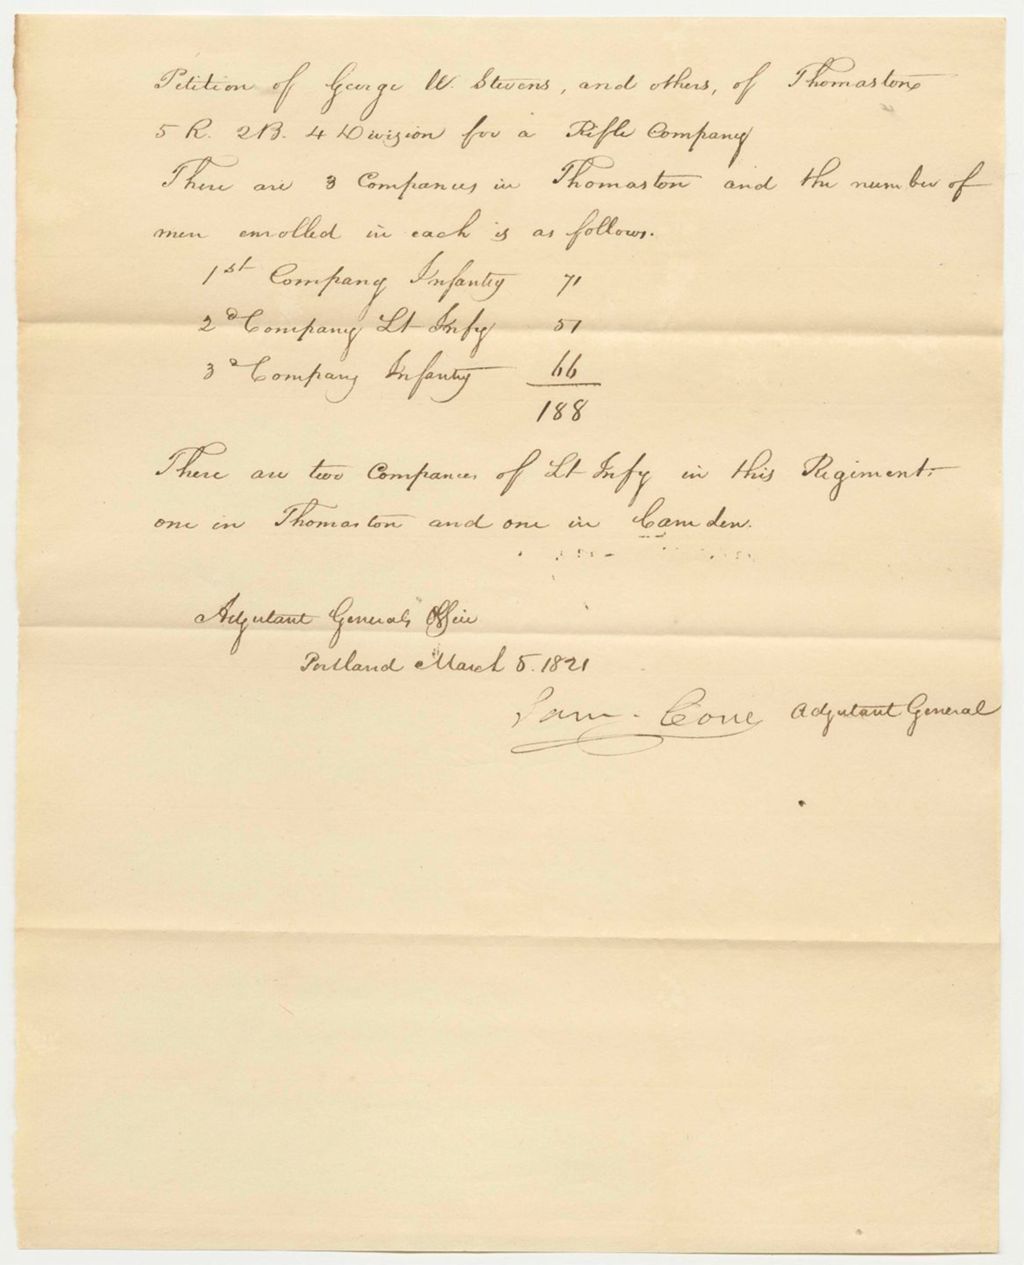 Petition of George W. Stevens, and others, of Thomaston
5 R. 2B. 4 Division for a Rifle Company
There are 3 Companies in Thomaston and the number of
men enrolled in each is as follows.
1st Company Infantry 71
2d Company Lt Infy 51
3d Company Infantry 66
188
There are two Companies of Lt Infy in this Regiment,
one in Thomaston and one in Camden.
Adjutant Generals Office
Portland March 5. 1821
Sam. Cony Adjutant General